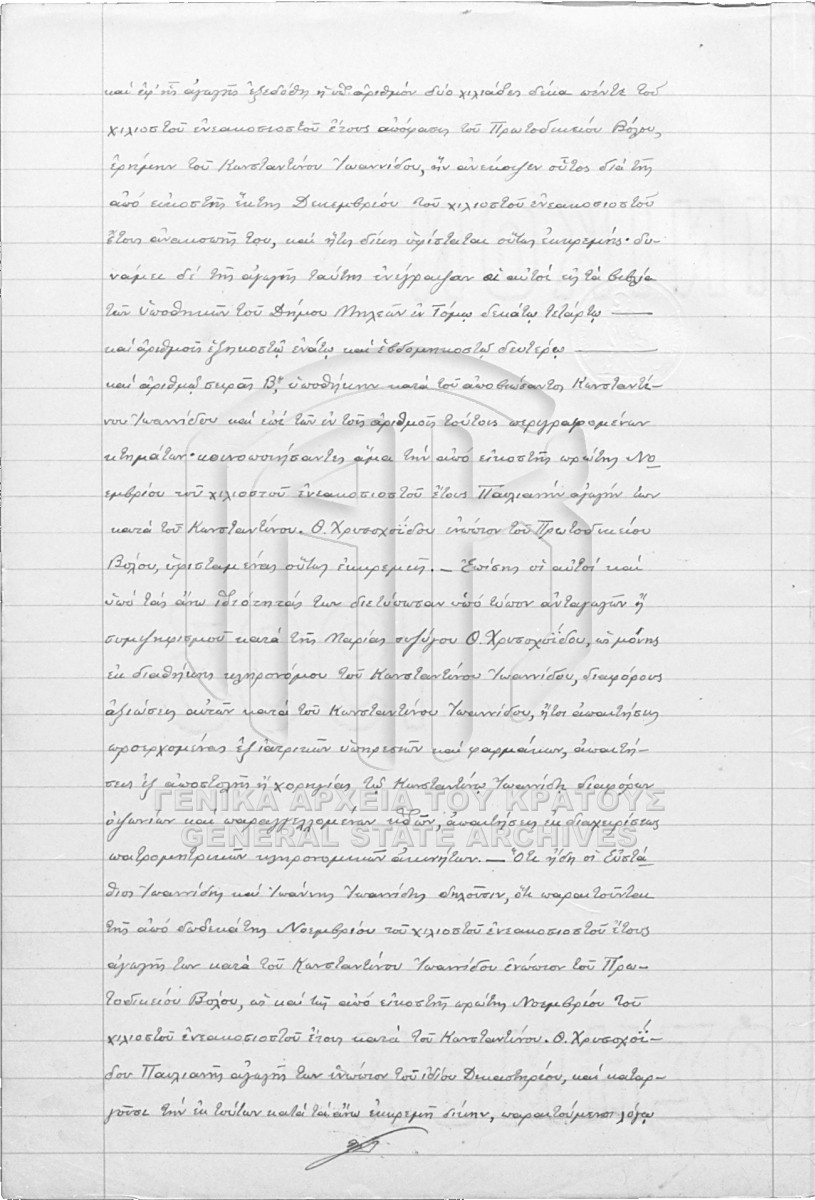 καὶ ἐφ' ἧς ἀγωγῆς ἐξεδόθη ἡ ὑπ' ἀριθμὸν δύο χιλιάδες δέκα πέντε τοῦ
χιλιοστοῦ ἐνεακοσιοστοῦ ἔτους ἀπόφασις τοῦ Πρωτοδικείου Βόλου,
ἐρήμην τοῦ Κωνσταντίνου Ἰωαννίδου, ἣν ἀνέκοψεν οὗτος διὰ τῆς
ἀπὸ εἰκοστῆς ἕκτης Δεκεμβρίου τοῦ χιλιοστοῦ ἐνεακοσιοστοῦ
ἔτους ἀνακοπῆς του, καὶ ἥτις δίκη ὑφίσταται οὕτως ἐκκρεμής· δυ-
νάμει δὲ τῆς ἀγωγῆς ταύτης ἐνέγραψαν οἱ αὐτοὶ εἰς τὰ βιβλία
τῶν ὑποθηκῶν τοῦ Δήμου Μηλεῶν ἐν Τόμῳ δεκάτῳ τετάρτῳ
καὶ ἀριθμοῖς ἑξηκοστῷ ἐνάτῳ καὶ ἑβδομηκοστῷ δευτέρῳ
καὶ ἀριθμῷ σειρᾶς Βᾳ ὑποθήκην κατὰ τοῦ ἀποβιώσαντος Κωνσταντί-
νου Ἰωαννίδου καὶ ἐπὶ τῶν ἐν τοῖς ἀριθμοῖς τούτοις περιγραφομένων
κτημάτων· κοινοποιήσαντες ἅμα τὴν ἀπὸ εἰκοστῆς πρώτης Νο
εμβρίου τοῦ χιλιοστοῦ ἐνεακοσιοστοῦ ἔτους Παυλιανὴν ἀγωγήν των
κατὰ τοῦ Κωνσταντίνου. Θ. Χρυσοχοΐδου ἐνώπιον τοῦ Πρωτοδικείου
Βόλου, ὑφισταμένας οὕτως ἐκκρεμεῖς. — Ἐπίσης οἱ αὐτοὶ καὶ
ὑπὸ τὰς ἄνω ἰδιότητάς των διετύπωσαν ὑπὸ τύπον ἀνταγωγῶν ἢ
συμψηφισμοῦ κατὰ τῆς Μαρίας συζύγου Θ. Χρυσοχοΐδου, ὡς μόνης
ἐκ διαθήκης κληρονόμου τοῦ Κωνσταντίνου Ἰωαννίδου, διαφόρους
ἀξιώσεις αὐτῶν κατὰ τοῦ Κωνσταντίνου Ἰωαννίδου, ἤτοι ἀπαιτήσεις
προερχομένας ἐξ ἰατρικῶν ὑπηρεσιῶν καὶ φαρμάκων, ἀπαιτή-
σεις ἐξ ἀποστολῆς ἢ χορηγίας τῷ Κωνσταντίνῳ Ἰωαννίδῃ διαφόρων
ὀψωνίων καὶ παραγγελλομένων εἰδῶν, ἀπαιτήσεις ἐκ διαχειρίσεως
πατρομητρικῶν κληρονομικῶν ἀκινήτων. — Ὅτι ἤδη οἱ Εὐστά
θιος Ἰωαννίδης καὶ Ἰωάννης Ἰωαννίδης δηλοῦσιν, ὅτι παραιτοῦνται
τῆς ἀπὸ δωδεκάτης Νοεμβρίου τοῦ χιλιοστοῦ ἐνεακοσιοστοῦ ἔτους
ἀγωγῆς των κατὰ τοῦ Κωνσταντίνου Ἰωαννίδου ἐνώπιον τοῦ Πρω-
τοδικείου Βόλου, ὡς καὶ τῆς ἀπὸ εἰκοστῆς πρώτης Νοεμβρίου τοῦ
χιλιοστοῦ ἐνεακοσιοστοῦ ἔτους κατὰ τοῦ Κωνσταντίνου. Θ. Χρυσοχοΐ-
δου Παυλιανῆς ἀγωγῆς των ἐνώπιον τοῦ ἰδίου Δικαστηρίου, καὶ καταρ-
γοῦσι τὴν ἐκ τούτων κατὰ τὰ ἄνω ἐκκρεμῆ δίκην, παραιτούμενοι λόγῳ
ΓΕΝΙΚΑ ΑΡΧΕΙΑ ΤΟΥ ΚΡΑΤΟΥΣ
GENERAL STATE ARCHIVES